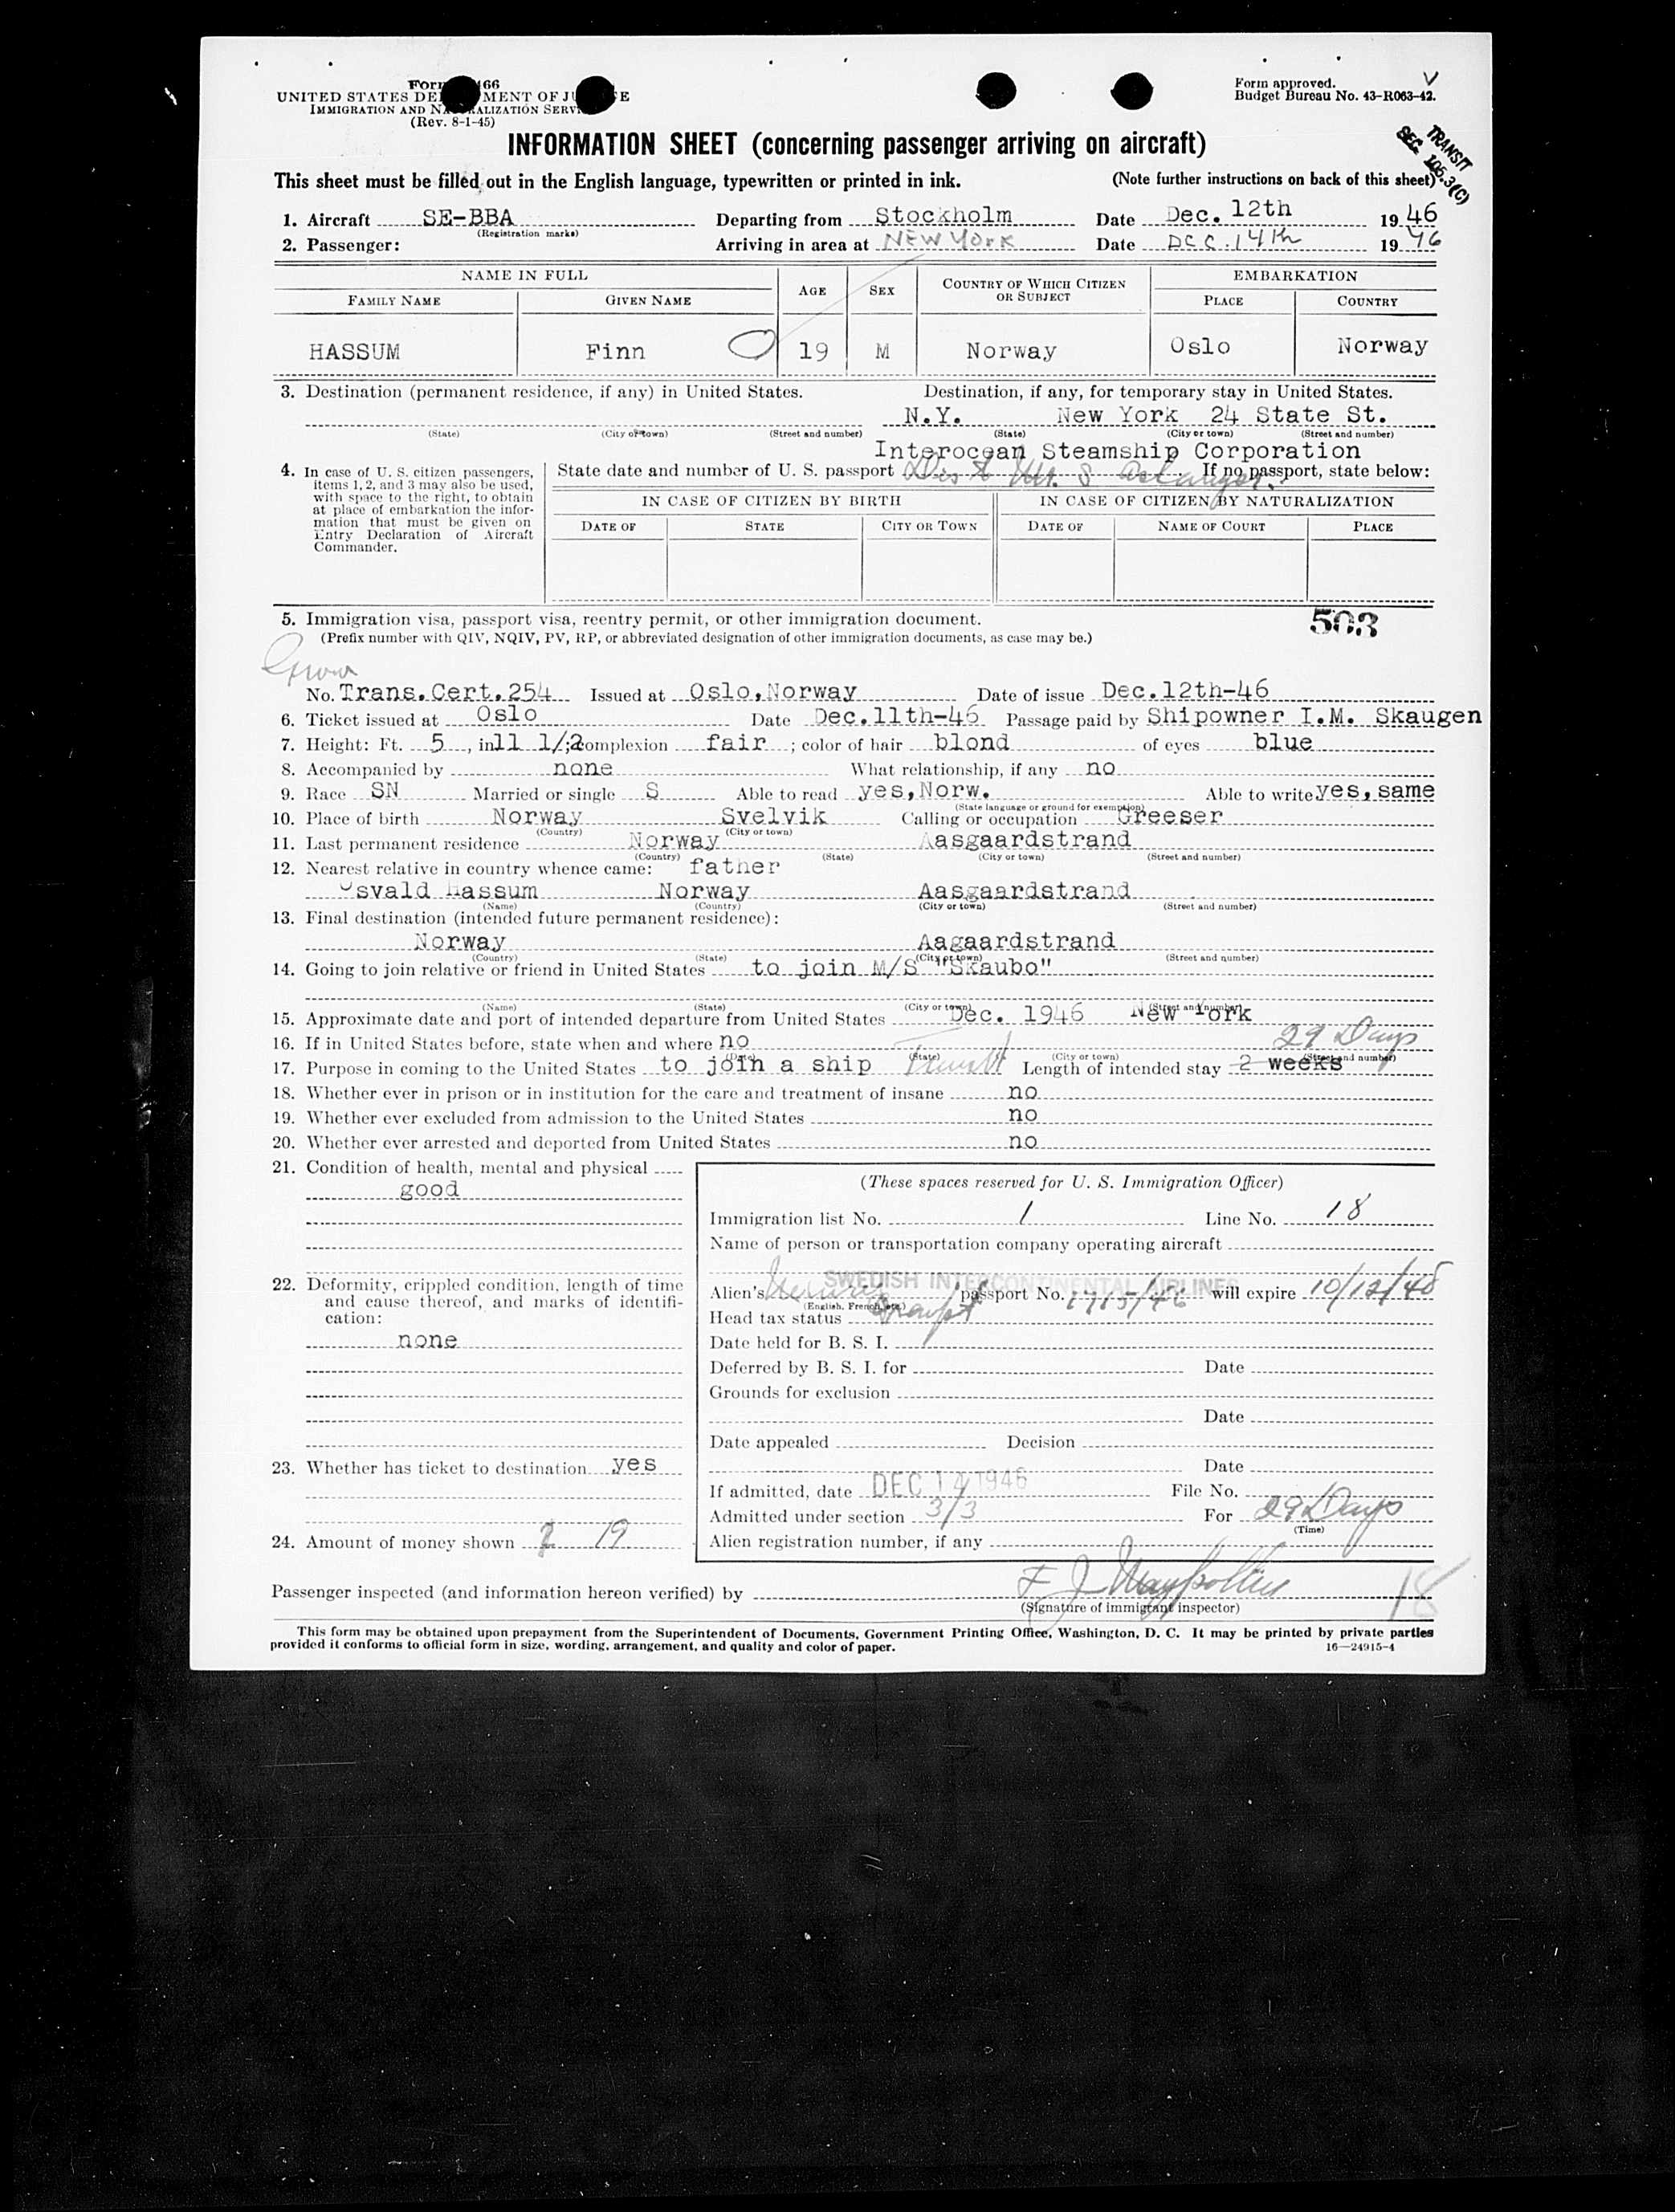 Form 466
UNITED STATES DEPARTMENT OF JUSTICE
IMMIGRATION AND NATURALIZATION SERVICE
(Rev. 8-1-45)
Form approved.
Budget Bureau No. 43-R063-42.
V
TRANSIT
SEC. 105.3(C)
INFORMATION SHEET (concerning passenger arriving on aircraft)
This sheet must be filled out in the English language, typewritten or printed in ink. (Note further instructions on back of this sheet)
1. Aircraft SE-BBA Departing from Stockholm Date Dec. 12th 1946
(Registration marks)
2. Passenger: Arriving in area at NEW YORK Date DEC. 14th 1946
NAME IN FULL AGE SEX COUNTRY OF WHICH CITIZEN OR SUBJECT EMBARKATION
FAMILY NAME GIVEN NAME PLACE COUNTRY
HASSUM Finn 19 M Norway Oslo Norway
3. Destination (permanent residence, if any) in United States. Destination, if any, for temporary stay in United States.
N.Y. New York 24 State St.
(State) (City or town) (Street and number) (State) (City or town) (Street and number)
Interocean Steamship Corporation
4. In case of U. S. citizen passengers, items 1, 2, and 3 may also be used, with space to the right, to obtain at place of embarkation the information that must be given on Entry Declaration of Aircraft Commander.
State date and number of U. S. passport If no passport, state below:
IN CASE OF CITIZEN BY BIRTH IN CASE OF CITIZEN BY NATURALIZATION
DATE OF STATE CITY OR TOWN DATE OF NAME OF COURT PLACE
5. Immigration visa, passport visa, reentry permit, or other immigration document. 503
(Prefix number with QIV, NQIV, PV, RP, or abbreviated designation of other immigration documents, as case may be.)
No. Trans.Cert.254 Issued at Oslo,Norway Date of issue Dec.12th-46
6. Ticket issued at Oslo Date Dec.11th-46 Passage paid by Shipowner I.M. Skaugen
7. Height: Ft. 5, in. 11 1/2; complexion fair; color of hair blond of eyes blue
8. Accompanied by none What relationship, if any no
9. Race SN Married or single S Able to read yes,Norw. Able to write yes,same
(State language or ground for exemption)
10. Place of birth Norway Svelvik Calling or occupation Greeser
(Country) (City or town)
11. Last permanent residence Norway Aasgaardstrand
(Country) (State) (City or town) (Street and number)
12. Nearest relative in country whence came: father
Osvald Hassum Norway Aasgaardstrand
(Name) (Country) (City or town) (Street and number)
13. Final destination (intended future permanent residence):
Norway Aagaardstrand
(Country) (State) (City or town) (Street and number)
14. Going to join relative or friend in United States to join M/S "Skaubo"
(Name) (State) (City or town) (Street and number)
15. Approximate date and port of intended departure from United States Dec. 1946 New York
16. If in United States before, state when and where no 29 Days
(Date) (State) (City or town) (Street and number)
17. Purpose in coming to the United States to join a ship Transit Length of intended stay 2 weeks
18. Whether ever in prison or in institution for the care and treatment of insane no
19. Whether ever excluded from admission to the United States no
20. Whether ever arrested and deported from United States no
21. Condition of health, mental and physical
good
22. Deformity, crippled condition, length of time and cause thereof, and marks of identification:
none
23. Whether has ticket to destination yes
24. Amount of money shown $ 19
(These spaces reserved for U. S. Immigration Officer)
Immigration list No. 1 Line No. 18
Name of person or transportation company operating aircraft
SWEDISH INTERCONTINENTAL AIRLINES
Alien's passport No. 1715/46 will expire 10/12/48
(English, French, etc.)
Head tax status Exempt
Date held for B. S. I.
Deferred by B. S. I. for Date
Grounds for exclusion
Date
Date appealed Decision
Date
If admitted, date DEC 14 1946 File No.
Admitted under section 3/3 For 29 Days
(Time)
Alien registration number, if any
Passenger inspected (and information hereon verified) by F J
(Signature of immigrant inspector)
18
This form may be obtained upon prepayment from the Superintendent of Documents, Government Printing Office, Washington, D. C. It may be printed by private parties
provided it conforms to official form in size, wording, arrangement, and quality and color of paper. 16—24915-4